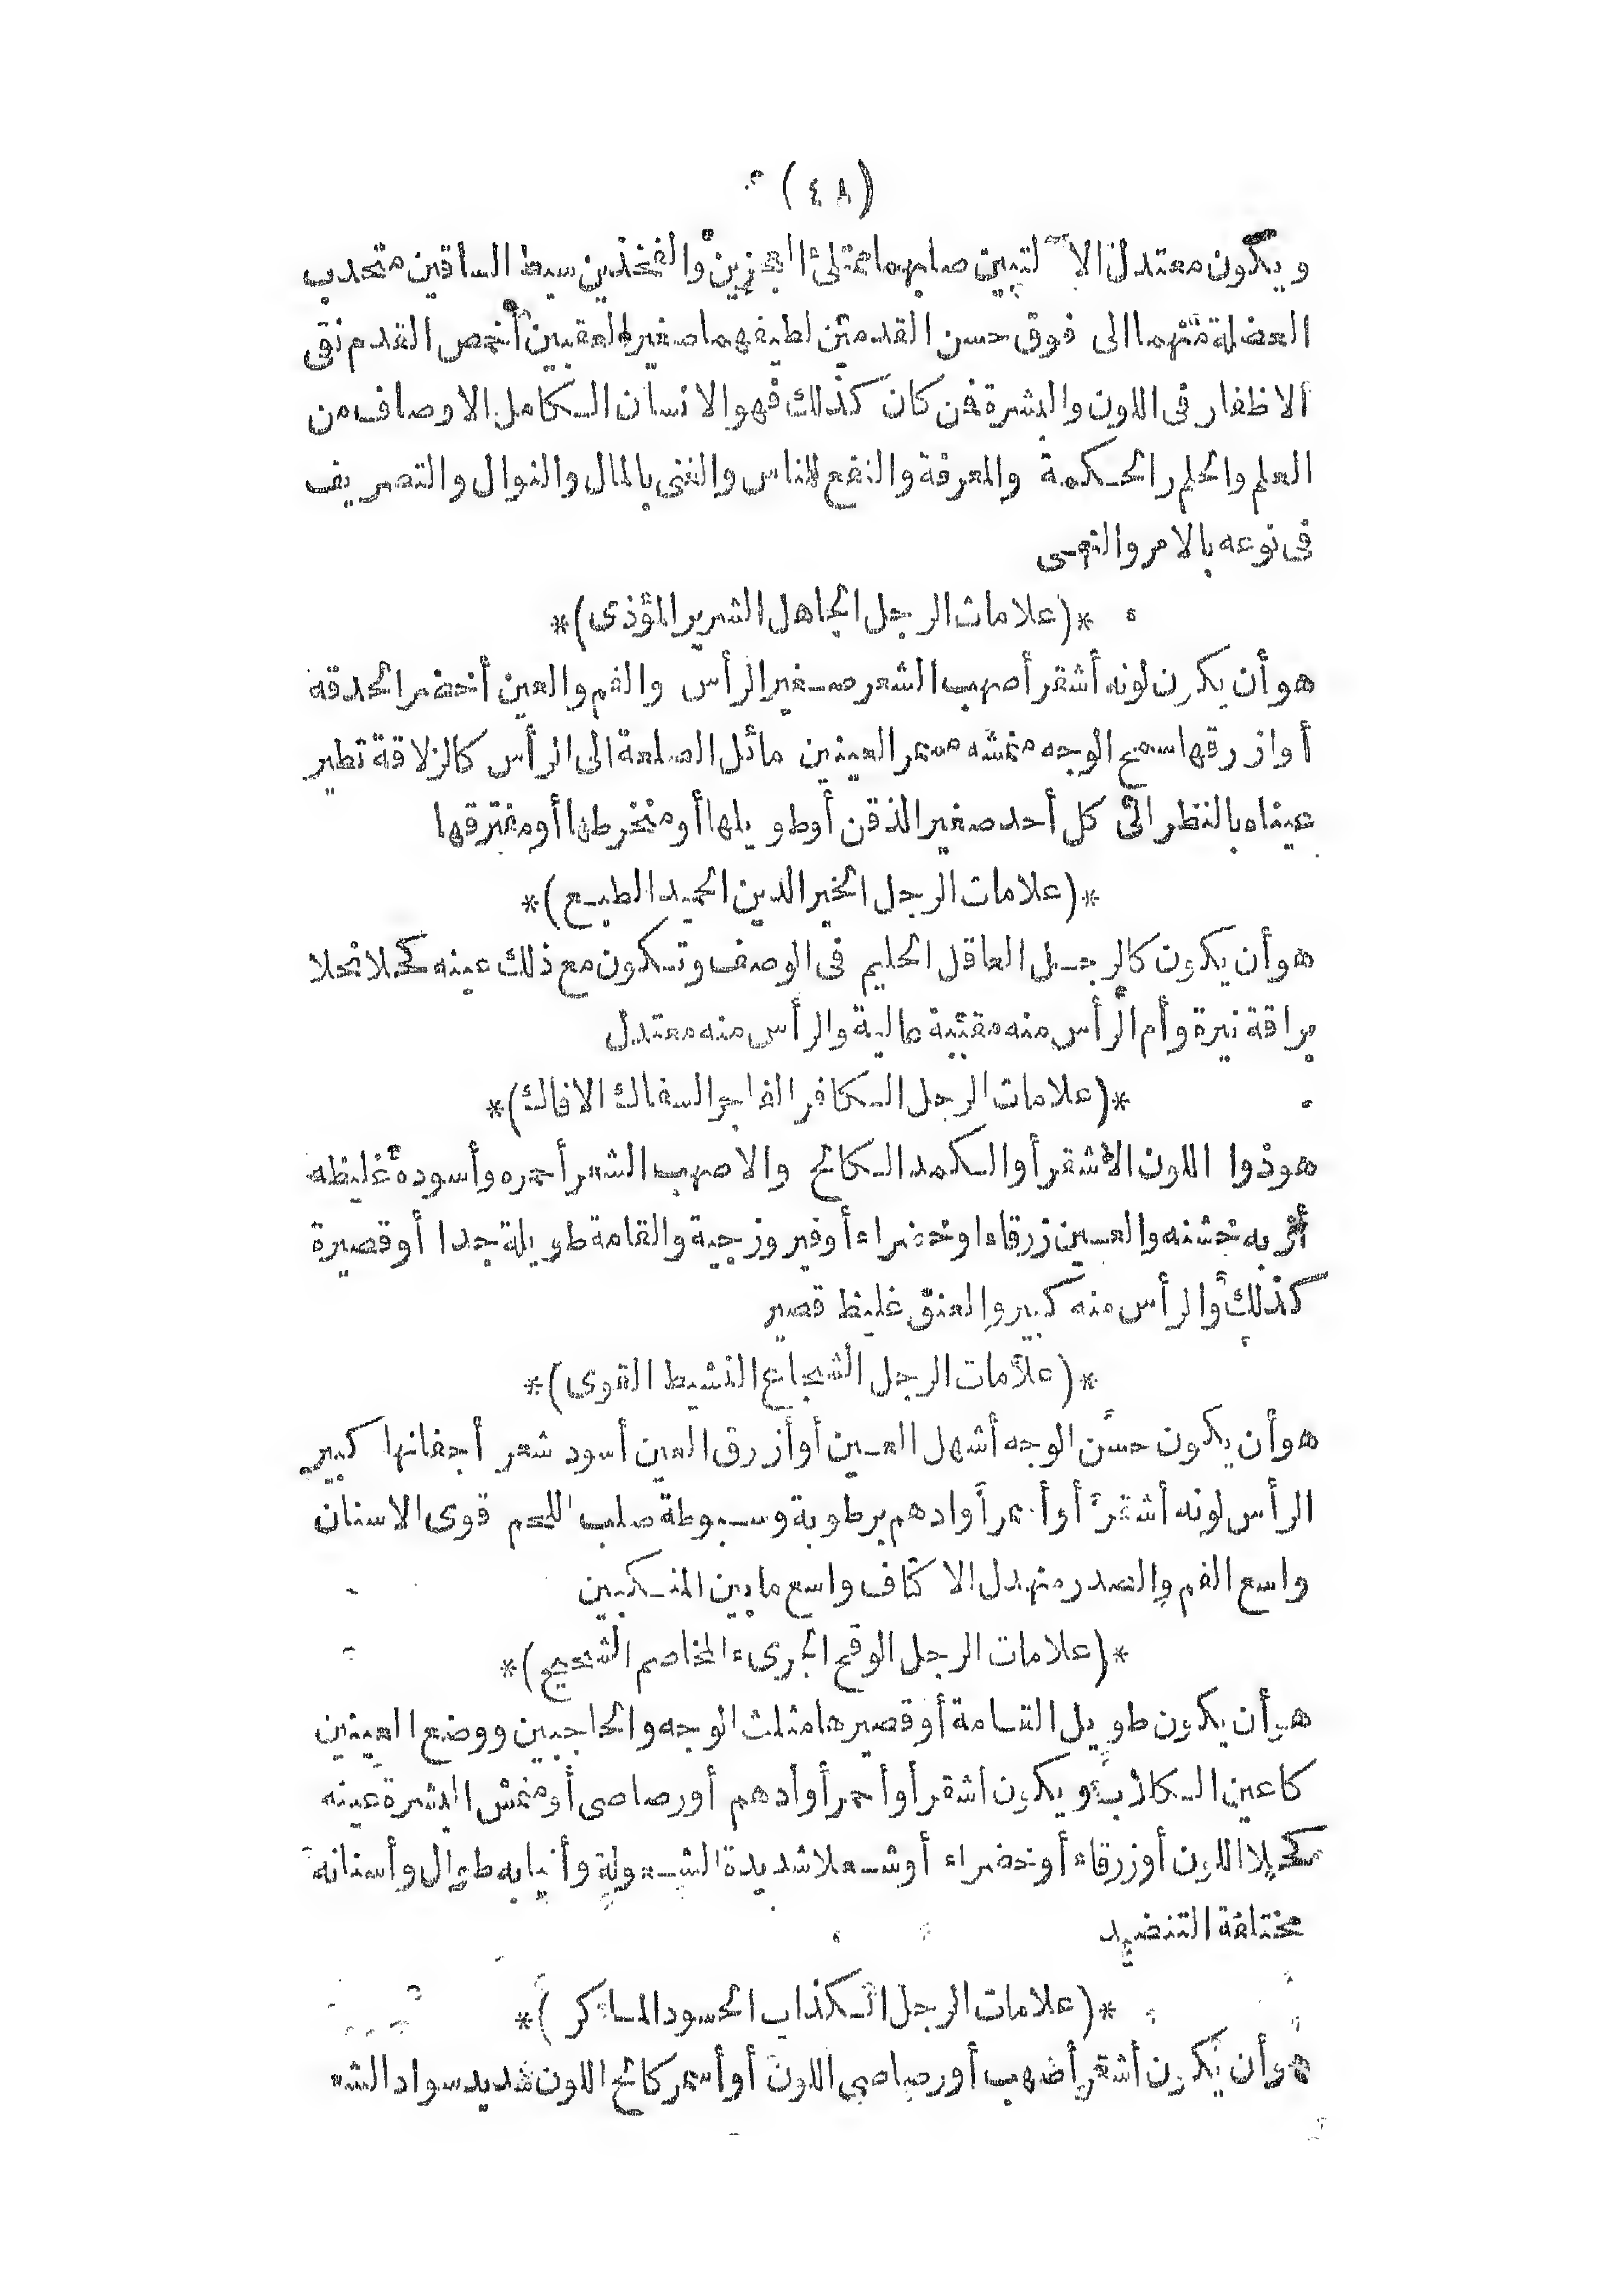 (٤٨)
ويكون معتدل الاٌليتين صلبهما ممتلئ العجزين والفخذين سبط الساقين متحدب
العضلة منهما الى فوق حسن القدمين لطيفهما صغير العقبين أخمص القدم نقى
الاظفار فى اللون والبشرة فمن كان كذلك فهو الانسان الكامل الاوصاف من
العلم والحلم والحكمة والمعرفة والنفع للناس والغنى بالمال والنوال والتصريف
فى نوعه بالامر والنهى
*(علامات الرجل الجاهل الشرير المؤذى)*
هو أن يكون لونه أشقر أصهب الشعر صغير الرأس والفم والعين أخضر الحدقة
أوازرقها سمج الوجه مغشه ممعر العينين مائل الصلعة الى الرأس كالزلاقة تطير
عيناه بالنظر الى كل أحد صغير الذقن أوطويلها أو منخرطها أو مفترقها
*(علامات الرجل الخير الدين الحميد الطبع)*
هو أن يكون كالرجل العاقل الحليم فى الوصف وتكون مع ذلك عينه كحلا نجلا
براقة نيرة وأم الرأس منه مقببة عالية والرأس منه معتدل
*(علامات الرجل الكافر الفاجر السفاك الافاك)*
هو ذوا اللون الاشقر أو الكمد الكالح والاصهب الشعر أحمره وأسوده غليظه
به خشنه والعين زرقاء اوخضراء أوفيروزجية والقامة طويلة جدا أوقصيرة
كذلك والرأس منه كبير والعنق غليظ قصير
*(علامات الرجل الشجاع النشيط القوى)*
هو أن يكون حسن الوجه أشهل العين أوأزرق العين أسود شعر أجفانها كبير
الرأس لونه أشقر أوأسمر أوادهم برطوبة وسبوطة صلب اللحم قوى الاسنان
واسع الفم والصدر منهدل الاكتاف واسع ما بين المنكبين
*(علامات الرجل الوقح الجرىء المخاصم الشحيح)*
هو أن يكون طويل القامة أوقصيرها مثلث الوجه والحاجبين ووضع العينين
كاعين الكلاب ويكون اشقر أوأحمر أوأدهم أورصاصى أومغش البشرة عينه
كحلا اللون أوزرقاء أوخضراء أوشعلا شديدة الشعولة وأنيابه طوال وأسنانه
مختلفة التنضيد
*(علامات الرجل الكذاب الحسود الماكر)*
هو أن يكون أشقر أصهب أورصاصى اللون أوأسمر كالح اللون شديد سواد الشـ